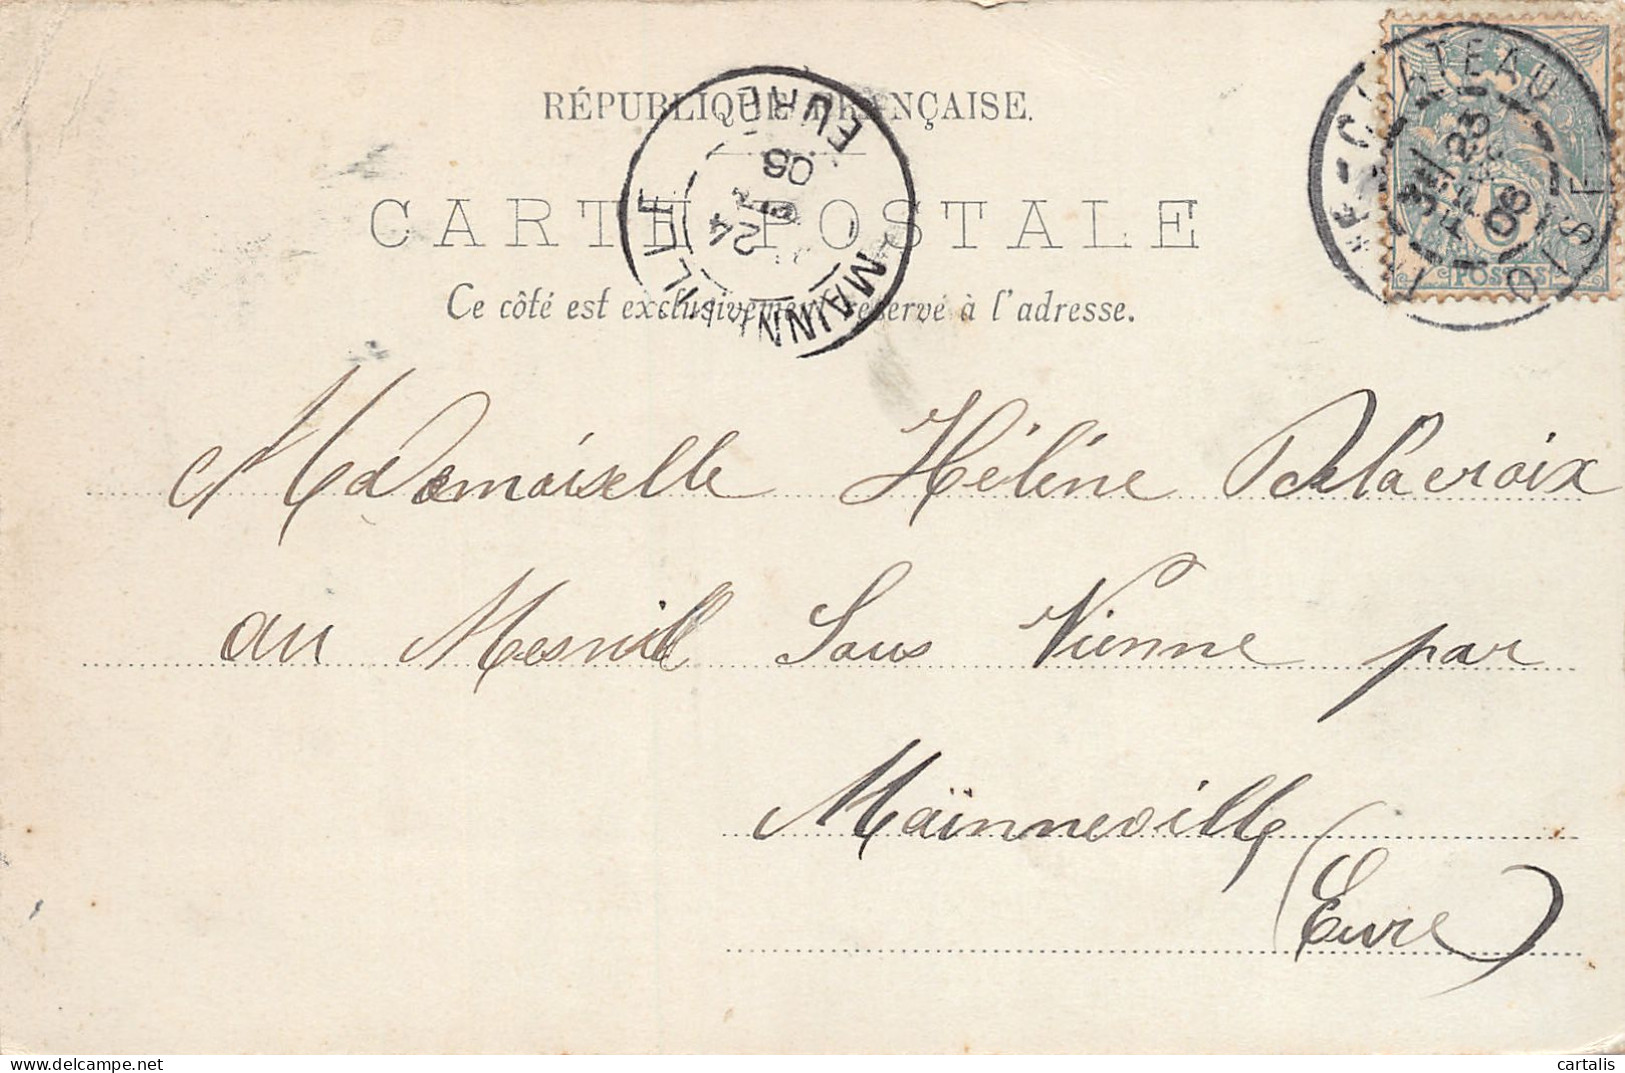 RÉPUBLIQUE FRANÇAISE.
CARTE POSTALE
Ce côté est exclusivement réservé à l'adresse.
MAINNEVILLE
EURE
24
06
CHATEAU
OISE
23
06
POSTES
Mademoiselle Hélène Delacroix
au Mesnil Sous Vienne par
Maïnneville
(Eure)
cartalis